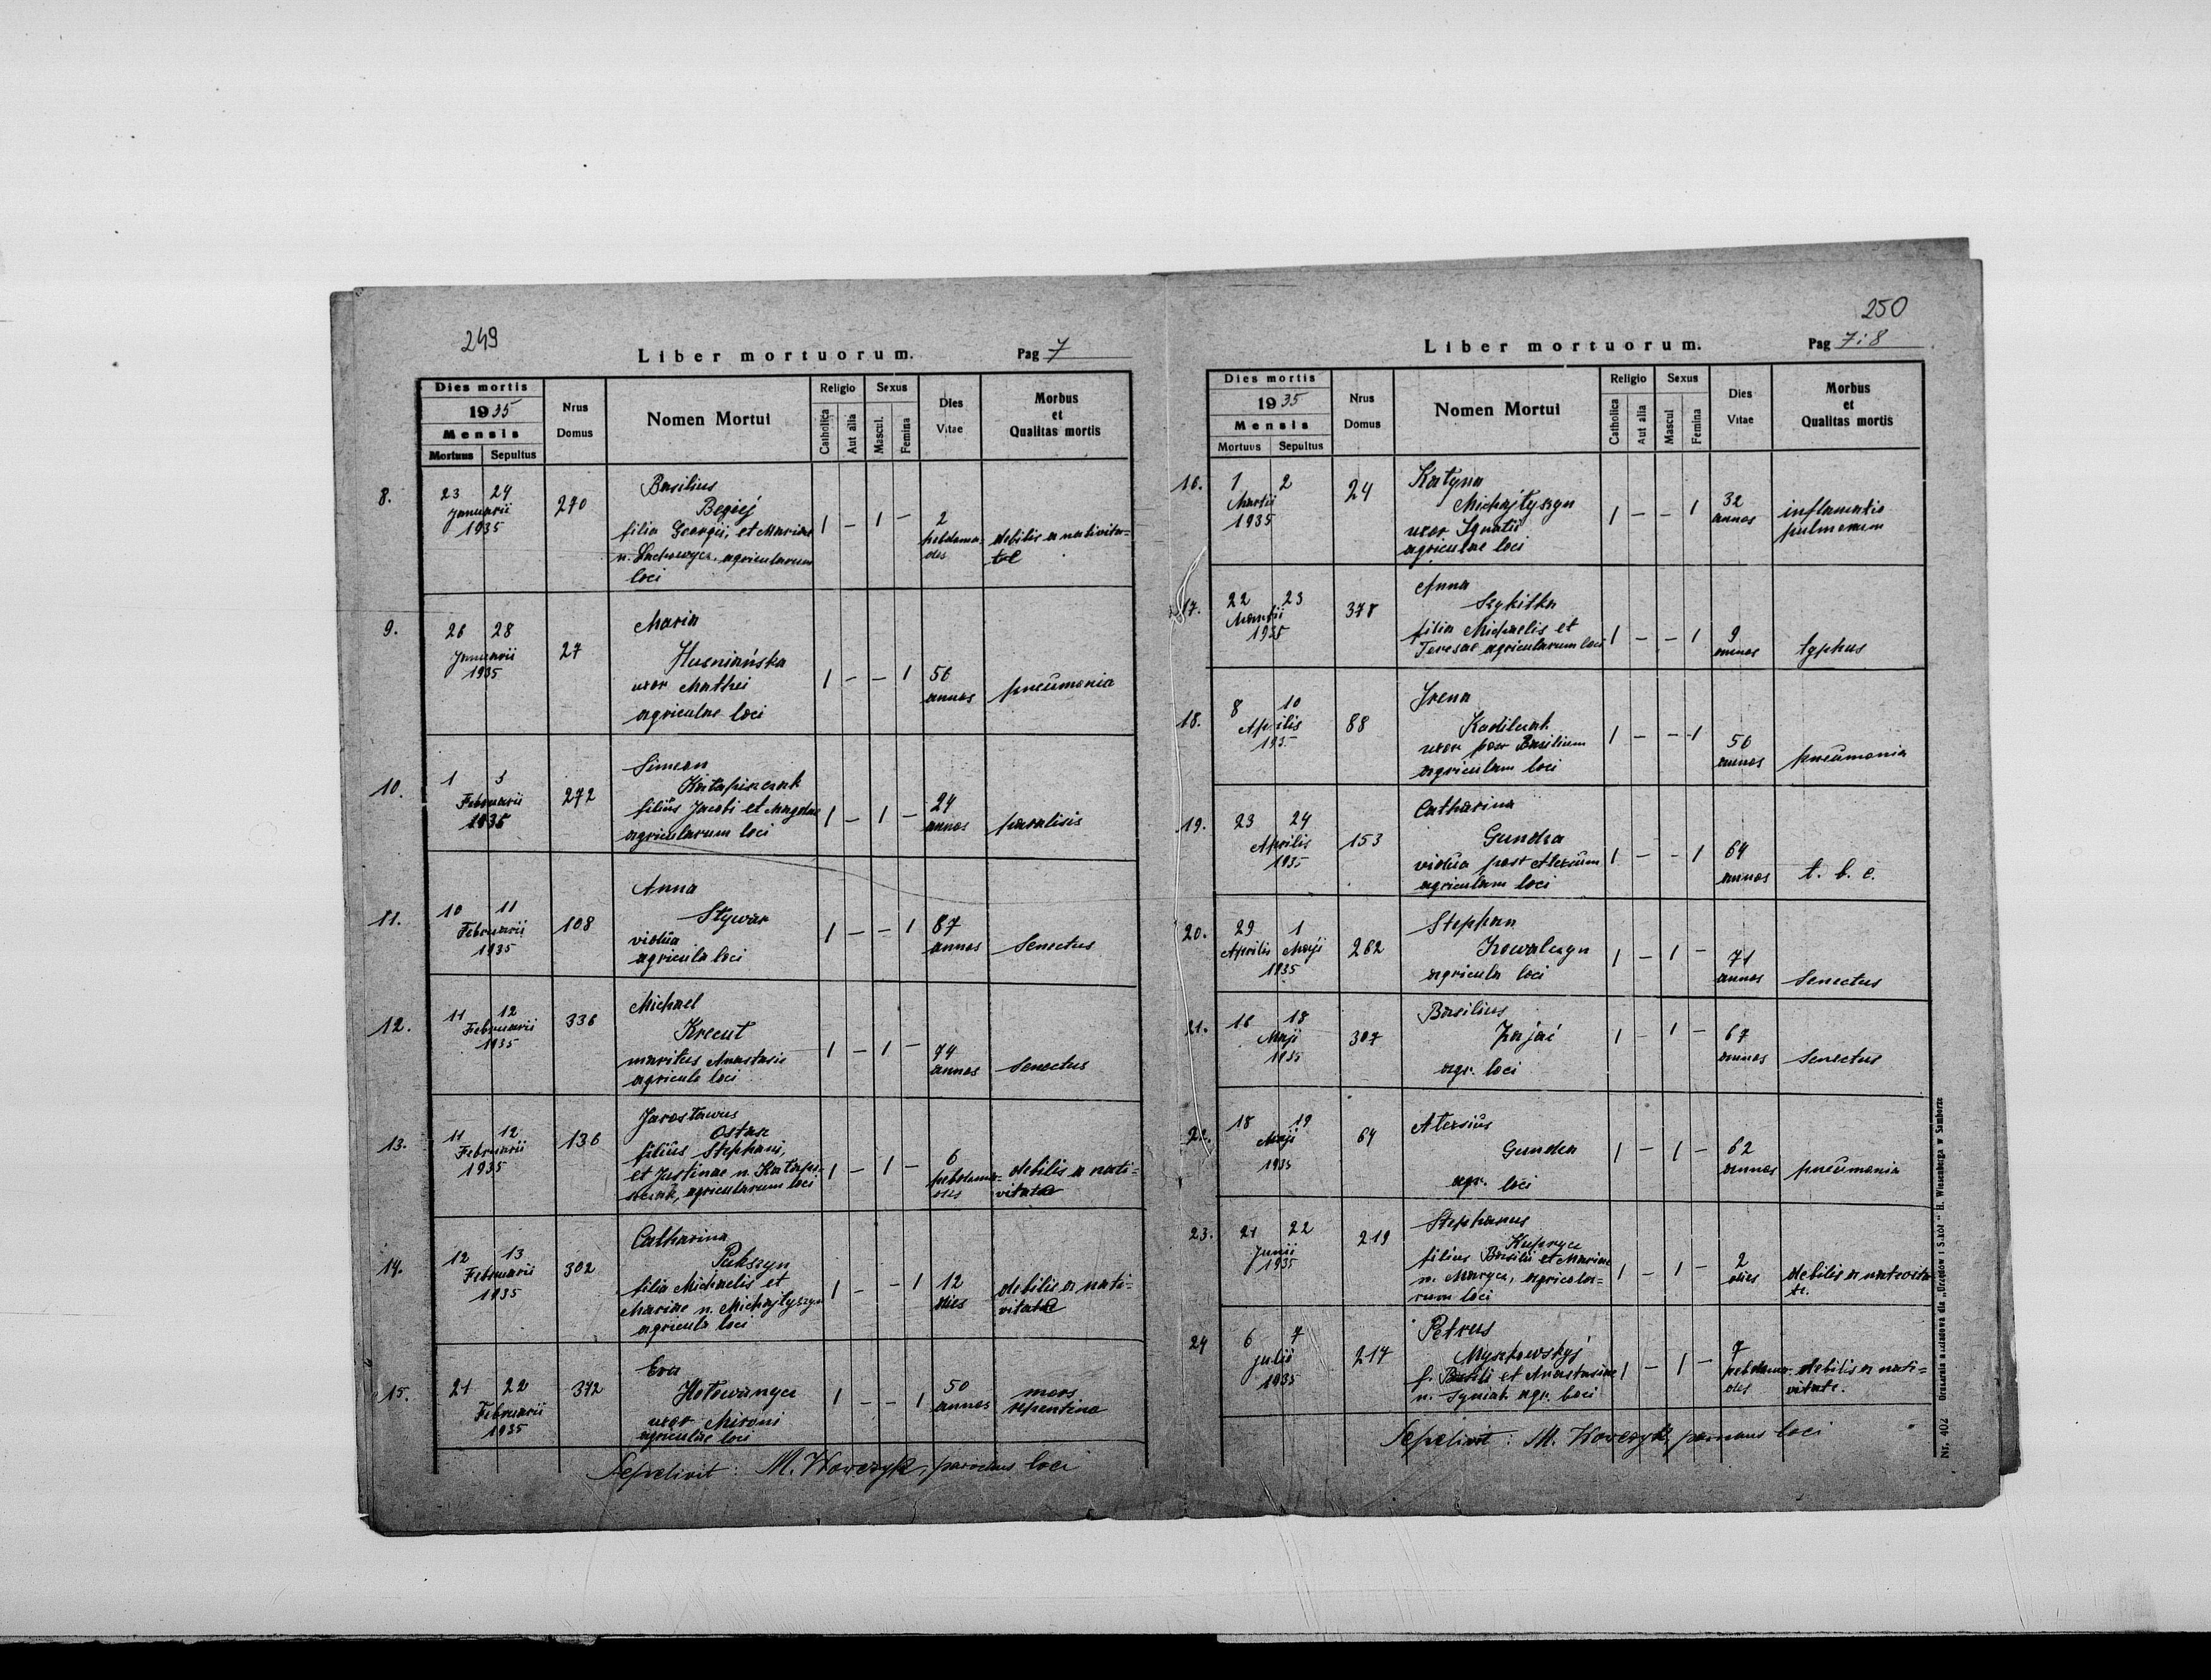 249
Liber mortuorum.
Pag 7
Dies mortis
1935
Mensis
Mortuus Sepultus
Nrus Domus
Nomen Mortui
Religio
Catholica
Aut alia
Sexus
Mascul.
Femina
Dies Vitae
Morbus
et
Qualitas mortis
8. 23 24 270 Basilius
Januarii
1935
filia Georgii, et Mariae 1 – 1 – 2
agricularum
loci
hebdoma-
des
debilis a nativita-
te
9. 26 28 27 Maria
Januarii
1935
Husniańska
uxor Mathei
agriculae loci
1 – – 1 56
annos
pneumonia
10. 1 3 272 Simeon
Februarii
1935
filius Jacobi et Magdae
agricularum loci
1 – 1 – 24
annos
paralisis
11. 10 11 108 Anna
Februarii
1935
Stywar
vidua
agricula loci
1 – – 1 87
annos
Senectus
12. 11 12 336 Michael
Februarii
1935
Krecut
maritus Anastasie
agricula loci
1 – 1 – 74
annos
Senectus
13. 11 12 136 Jarosławus
Februarii
1935
Ostasz
filius Stephani,
et Justinae n. Katapi-
agricularum loci
1 – 1 – 6
debilis a nati-
vitate
14. 12 13 302 Catharina
Februarii
1935
Pukszyn
filia Michaelis et
Mariae n. Michajłyszyn
agricula loci
1 – – 1 12
dies
debilis a nati-
vitate
15. 21 22 372 Eva
Februarii
1935
Hotowanycz
uxor Mironi
agriculae loci
1 – – 1 50
annos
mors
repentina
Sepelivit: M. Korczyk, parochus loci
250
Liber mortuorum.
Pag 7i8
Dies mortis
1935
Mensis
Mortuus Sepultus
Nrus Domus
Nomen Mortui
Religio
Catholica
Aut alia
Sexus
Mascul
Femina
Dies Vitae
Morbus
et
Qualitas mortis
16. 1 2 24 Katyna
Martii
1935
Michajłyszyn
uxor Ignatii
agriculae loci
1 – – 1 32
annos
inflamatio
pulmonum
17. 22 23 378 Anna
Martii
1935
Szykitka
filia Michaelis et
Teresae agricularum loci
1 – – 1 9
annos
typhus
18. 8 10 88 Irena
Aprilis
193
Kadiluk
uxor Basilium
agriculam loci
1 – – 1 56
annos
pneumonia
19. 23 24 153 Catharina
Aprilis
1935
Gundza
vidua post Alexium
agriculam loci
1 – – 1 64
annos
t. b. c.
20. 29 1 262 Stephan
Aprilis Maji
1935
Kowalczyn
agricula loci
1 – 1 – 71
annos
Senectus
21. 16 18 307 Basilius
Maji
1935
Zajać
agr. loci
1 – 1 – 67
annos
Senectus
22. 18 19 64 Alexius
Maji
1935
Gundza
agr. loci
1 – 1 – 62
annos
pneumonia
23. 21 22 219 Stephanus
Junii
1935
Kuprycz
filius Basilii et Mariae
n. Maryca, agricola-
rum loci
1 – 1 – 2
dies
debilis a nativita
te.
24 6 7 217 Petrus
Julii
1935
Myszkowskyj
f. Basili et Anastasiae
n. Syniak agr. loci
1 – 1 – 7
hebdoma-
des
debilis a nati-
vitate.
Sepelivit: M. Korczyk, parochus loci
Nr. 402 Drukarnia nakładowa dla „Urzędów i Szkół" H. Wiesenberga w Samborze